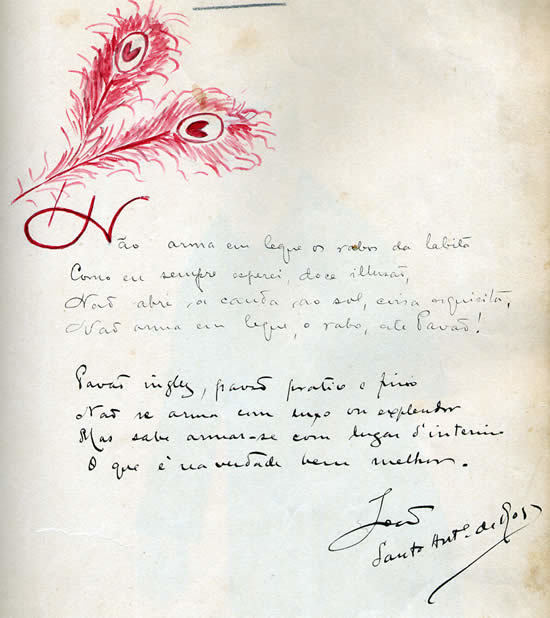 Não arma em leque os rabos da labita
Como eu sempre esperei, doce illusão,
Não abre a cauda ao sol, cousa exquisita,
Não arma em leque, o rabo, este Pavão!
Pavão inglez, pavão pratico e fino
Não se arma em luxo ou explendor
Mas sabe armar-se com lugar d'interino
O que é na verdade bem melhor.
João
Santo Antº. de